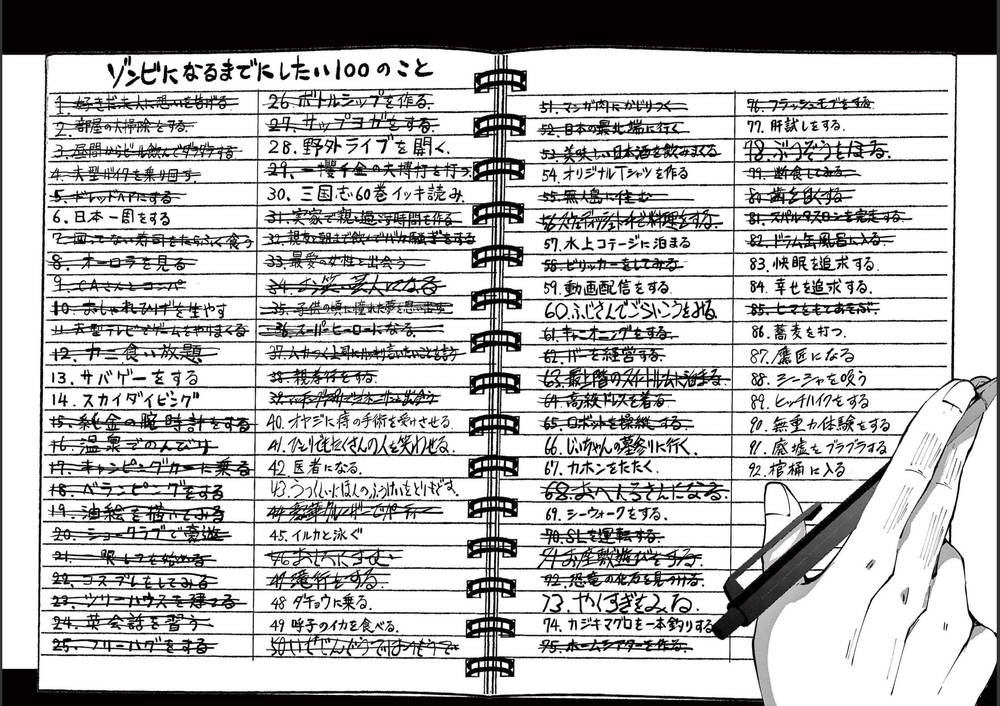 ゾンビになるまでにしたい100のこと
1. 好きだった人に思いを告げる
2. 部屋の大掃除をする。
3. 昼間からビール飲んでダラダラする
4. 大型バイクを乗り回す。
5. ドレッドヘアにする
6. 日本一周をする
7. 回ってない寿司をたらふく食う
8. オーロラを見る
9. CAさんとコンパ
10. おしゃれひげを生やす
11. 大型テレビでゲームをやりまくる
12. カニ食い放題
13. サバゲーをする
14. スカイダイビング
15. 純金の腕時計をする
16. 温泉でのんびり
17. キャンピングカーに乗る
18. ベランピングをする
19. 油絵を描いてみる
20. ショークラブで豪遊
21. 一眼レフを始める
22. コスプレをしてみる
23. ツリーハウスを建てる
24. 英会話を習う
25. フリーハグをする
26. ボトルシップを作る.
27. サップヨガをする.
28. 野外ライブを開く.
29. 一攫千金の大博打を打つ.
30. 三国志60巻イッキ読み.
31. 実家で親と過ごす時間を作る.
32. 親友と朝まで飲んでバカ騒ぎをする
33. 最愛の女性と出会う
34. お笑い芸人になる
35. 子供の頃に憧れた夢を思い出す
36. スーパーヒーローになる.
37. ムカつく上司に言いたいことを言う
38. 親孝行をする.
39. マッチングアプリで出会う
40. オヤジに痔の手術を受けさせる.
41. ひとりでもたくさんの人を笑わせる.
42. 医者になる.
43. うつくしいにほんのふうけいをとりもどす.
44. 豪華クルーザーでパーティー
45. イルカと泳ぐ
46. おしろにすむ
47. 滝行をする.
48 ダチョウに乗る.
49 呼子のイカを食べる.
50.
51. マンガ肉にかじりつく
52. 日本の最北端に行く
53. 美味しい日本酒を飲みまくる
54 オリジナルTシャツを作る
55. 無人島に住む
56. 料理をする.
57. 水上コテージに泊まる
58. ヒッチハイクをしてみる
59. 動画配信をする.
60. ふじさんでごらいこうをみる.
61. キャニオニングをする.
62. バーを経営する.
63. 最上階のスイートルームに泊まる
64. 高級ドレスを着る
65. ロボットを操縦する.
66. じいちゃんの墓参りに行く.
67. カホンをたたく.
68. おへんろさんになる.
69. シーウォークをする.
70. SLを運転する.
71. お座敷遊びをする.
72. 恐竜の化石を見つける.
73. やくすぎをみる.
74. カジキマグロを一本釣りする
75. ホームシアターを作る.
76. フラッシュモブをする
77. 肝試しをする.
78. ぶつぞうをほる.
79. 断食してみる.
80. 歯を白くする
81. スパルタスロンを完走する.
82. ドラム缶風呂に入る.
83. 快眠を追求する.
84. 幸せを追求する.
85. ヒマをもてあそぶ.
86. 蕎麦を打つ.
87. 鷹匠になる
88. シーシャを吸う
89. ヒッチハイクをする
90. 無重力体験をする
91. 廃墟をブラブラする
92. 棺桶に入る